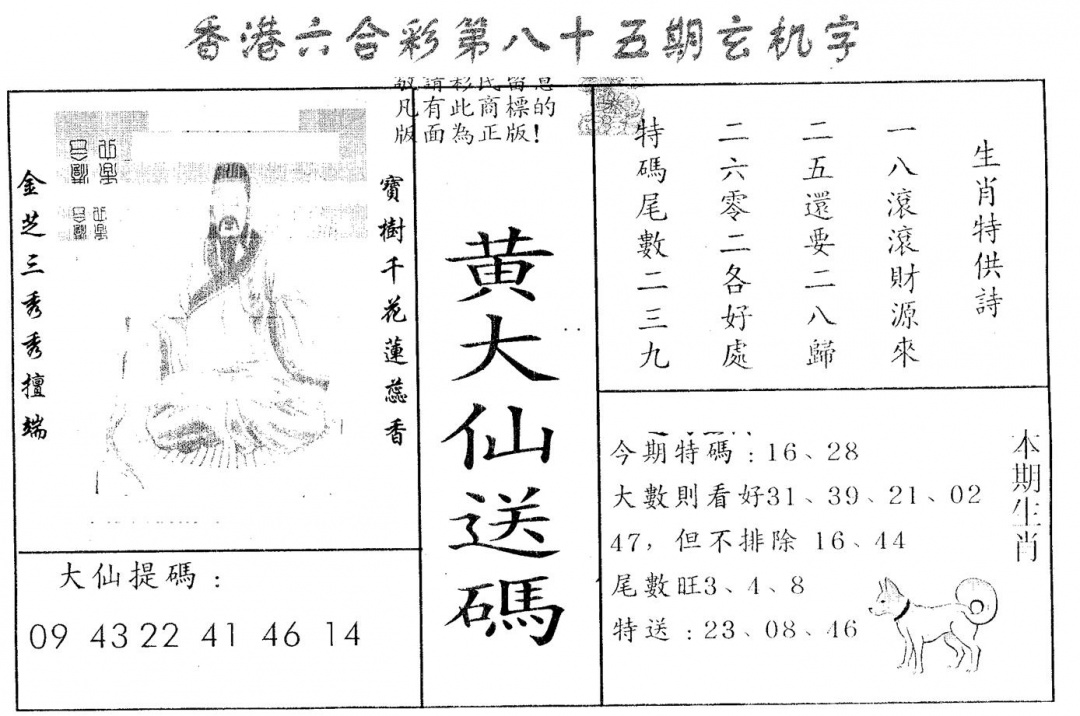 香港六合彩第八十五期玄机字
敬請彩民留意
凡有此商標的
版面為正版!
生肖特供詩
一八滾滾財源來
二五還要二八歸
二六零二各好處
特碼尾數二三九
寶樹千花蓮蕊香
金芝三秀秀擅端
黄大仙送碼
大仙提碼:
09 43 22 41 46 14
本期生肖
今期特碼:16、28
大數則看好31、39、21、02
47,但不排除 16、44
尾數旺3、4、8
特送:23、08、46